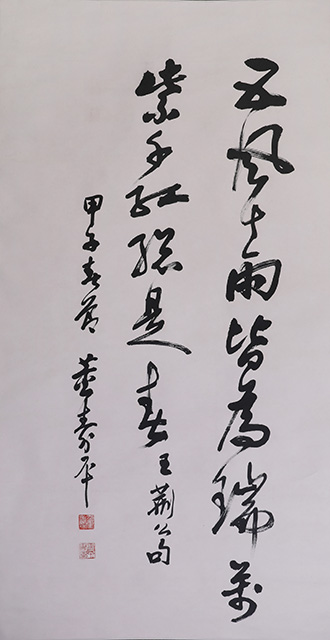 五风十雨皆为瑞万
紫千红总是春王荆公句
甲子春节 董寿平